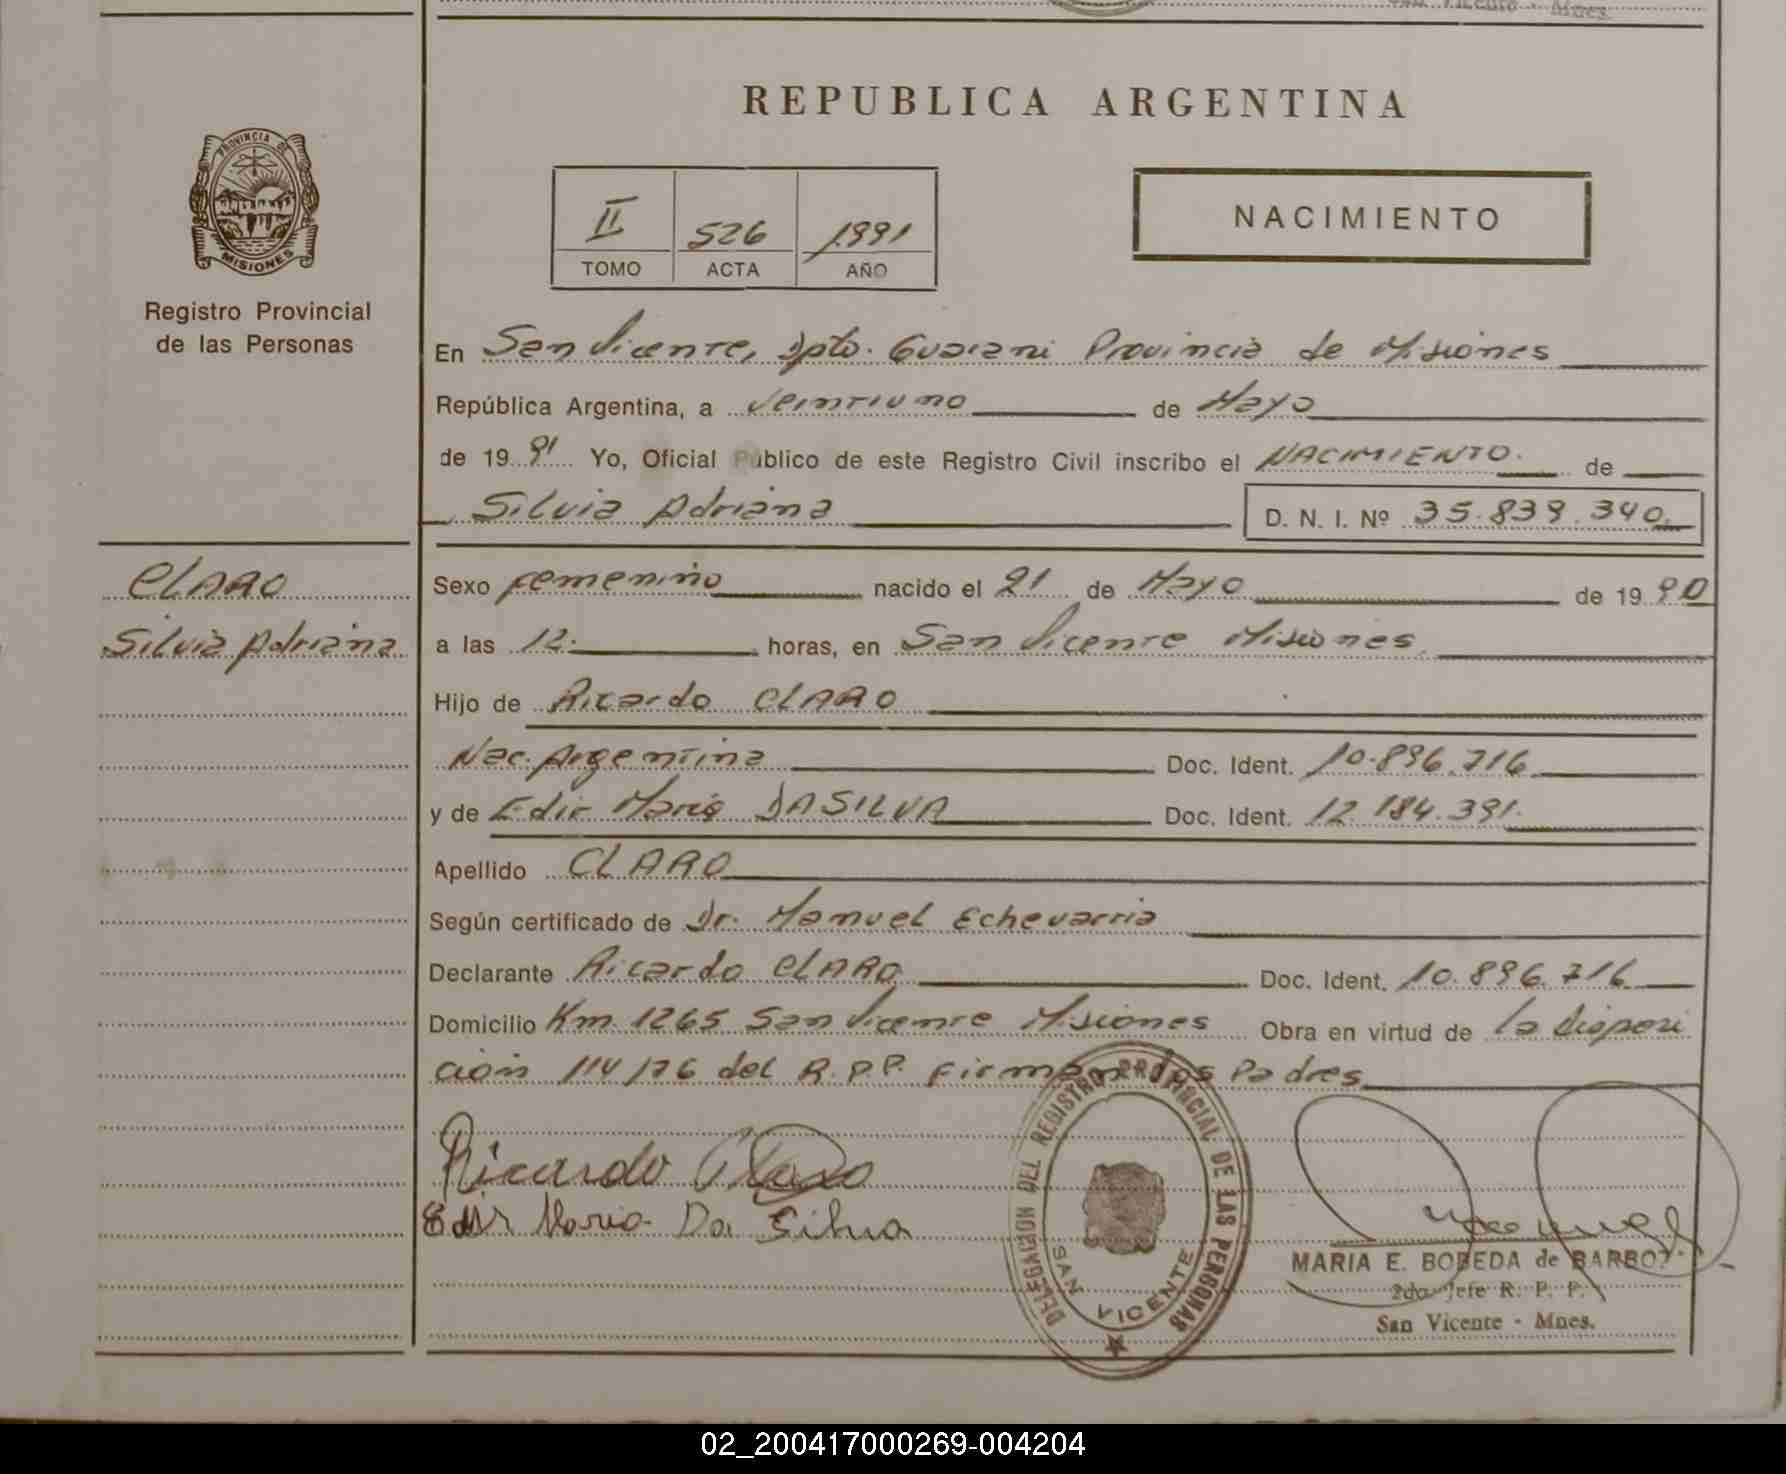 San Vicente - Mnes.
REPUBLICA ARGENTINA
PROVINCIA DE
MISIONES
Registro Provincial
de las Personas
II 526 1991
TOMO ACTA AÑO
NACIMIENTO
En San Vicente, Dpto. Guarani Provincia de Misiones
República Argentina, a Veintiuno de Mayo
de 1991 Yo, Oficial Público de este Registro Civil inscribo el NACIMIENTO. de
Silvia Adriana D. N. I. Nº 35.839.340
CLARO
Silvia Adriana
Sexo femenino nacido el 21 de Mayo de 1990
a las 12 horas, en San Vicente Misiones
Hijo de Ricardo CLARO
Nac. Argentina Doc. Ident. 10.896.716
y de Edir Maria DASILVA Doc. Ident. 12.184.391.
Apellido CLARO
Según certificado de Dr. Manuel Echevarria
Declarante Ricardo CLARO Doc. Ident. 10.896.716
Domicilio Km. 1265 San Vicente Misiones Obra en virtud de la Disposi
ción 114/76 del R.P.P. Firman los Padres
Ricardo Claro
Edir Maria Da Silva
DELEGACION DEL REGISTRO PROVINCIAL DE LAS PERSONAS
SAN VICENTE
MARIA E. BOBEDA de BARBOZ
2do Jefe R. P. P.
San Vicente - Mnes.
02_200417000269-004204